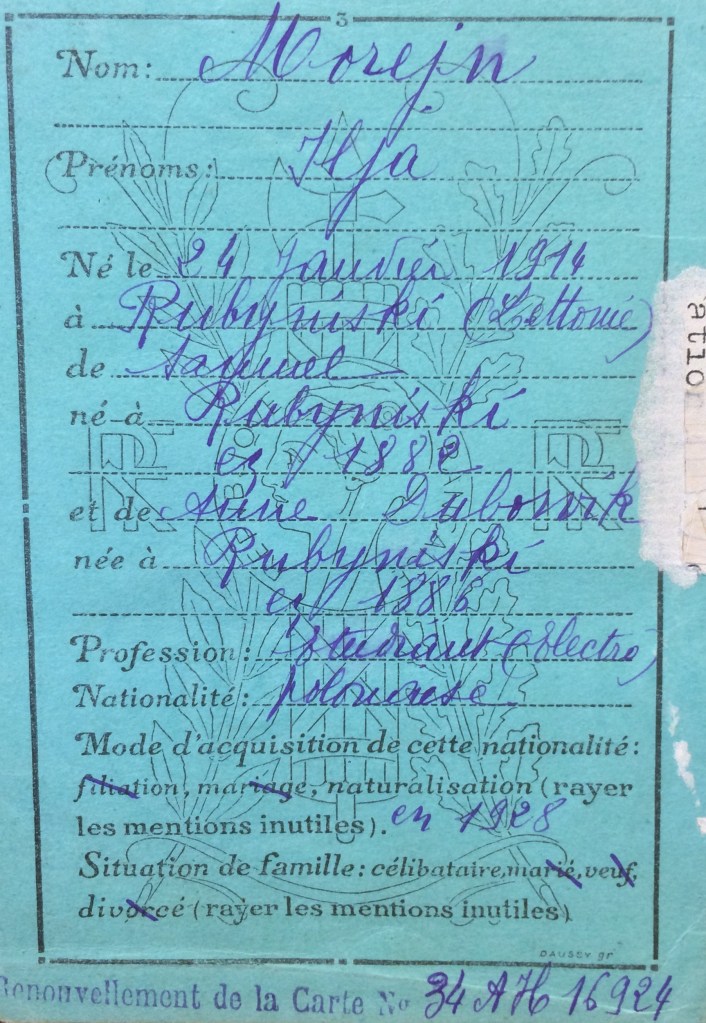 3
Nom: Morejn
Prénoms: Ilja
Né le 24 Janvier 1914
à Rubyniski (Lettonie)
de Samuel
né à Rubyniski
en 1882
et de Anne Dubownik
née à Rubyniski
en 1886
Profession: Etudiant (Electro)
Nationalité: polonaise
Mode d'acquisition de cette nationalité:
filiation, mariage, naturalisation (rayer
les mentions inutiles). en 1928
Situation de famille: célibataire, marié, veuf,
divorcé (rayer les mentions inutiles)
DAUSSY gr
Renouvellement de la Carte No 34 AH 16924
atio
RF
RF